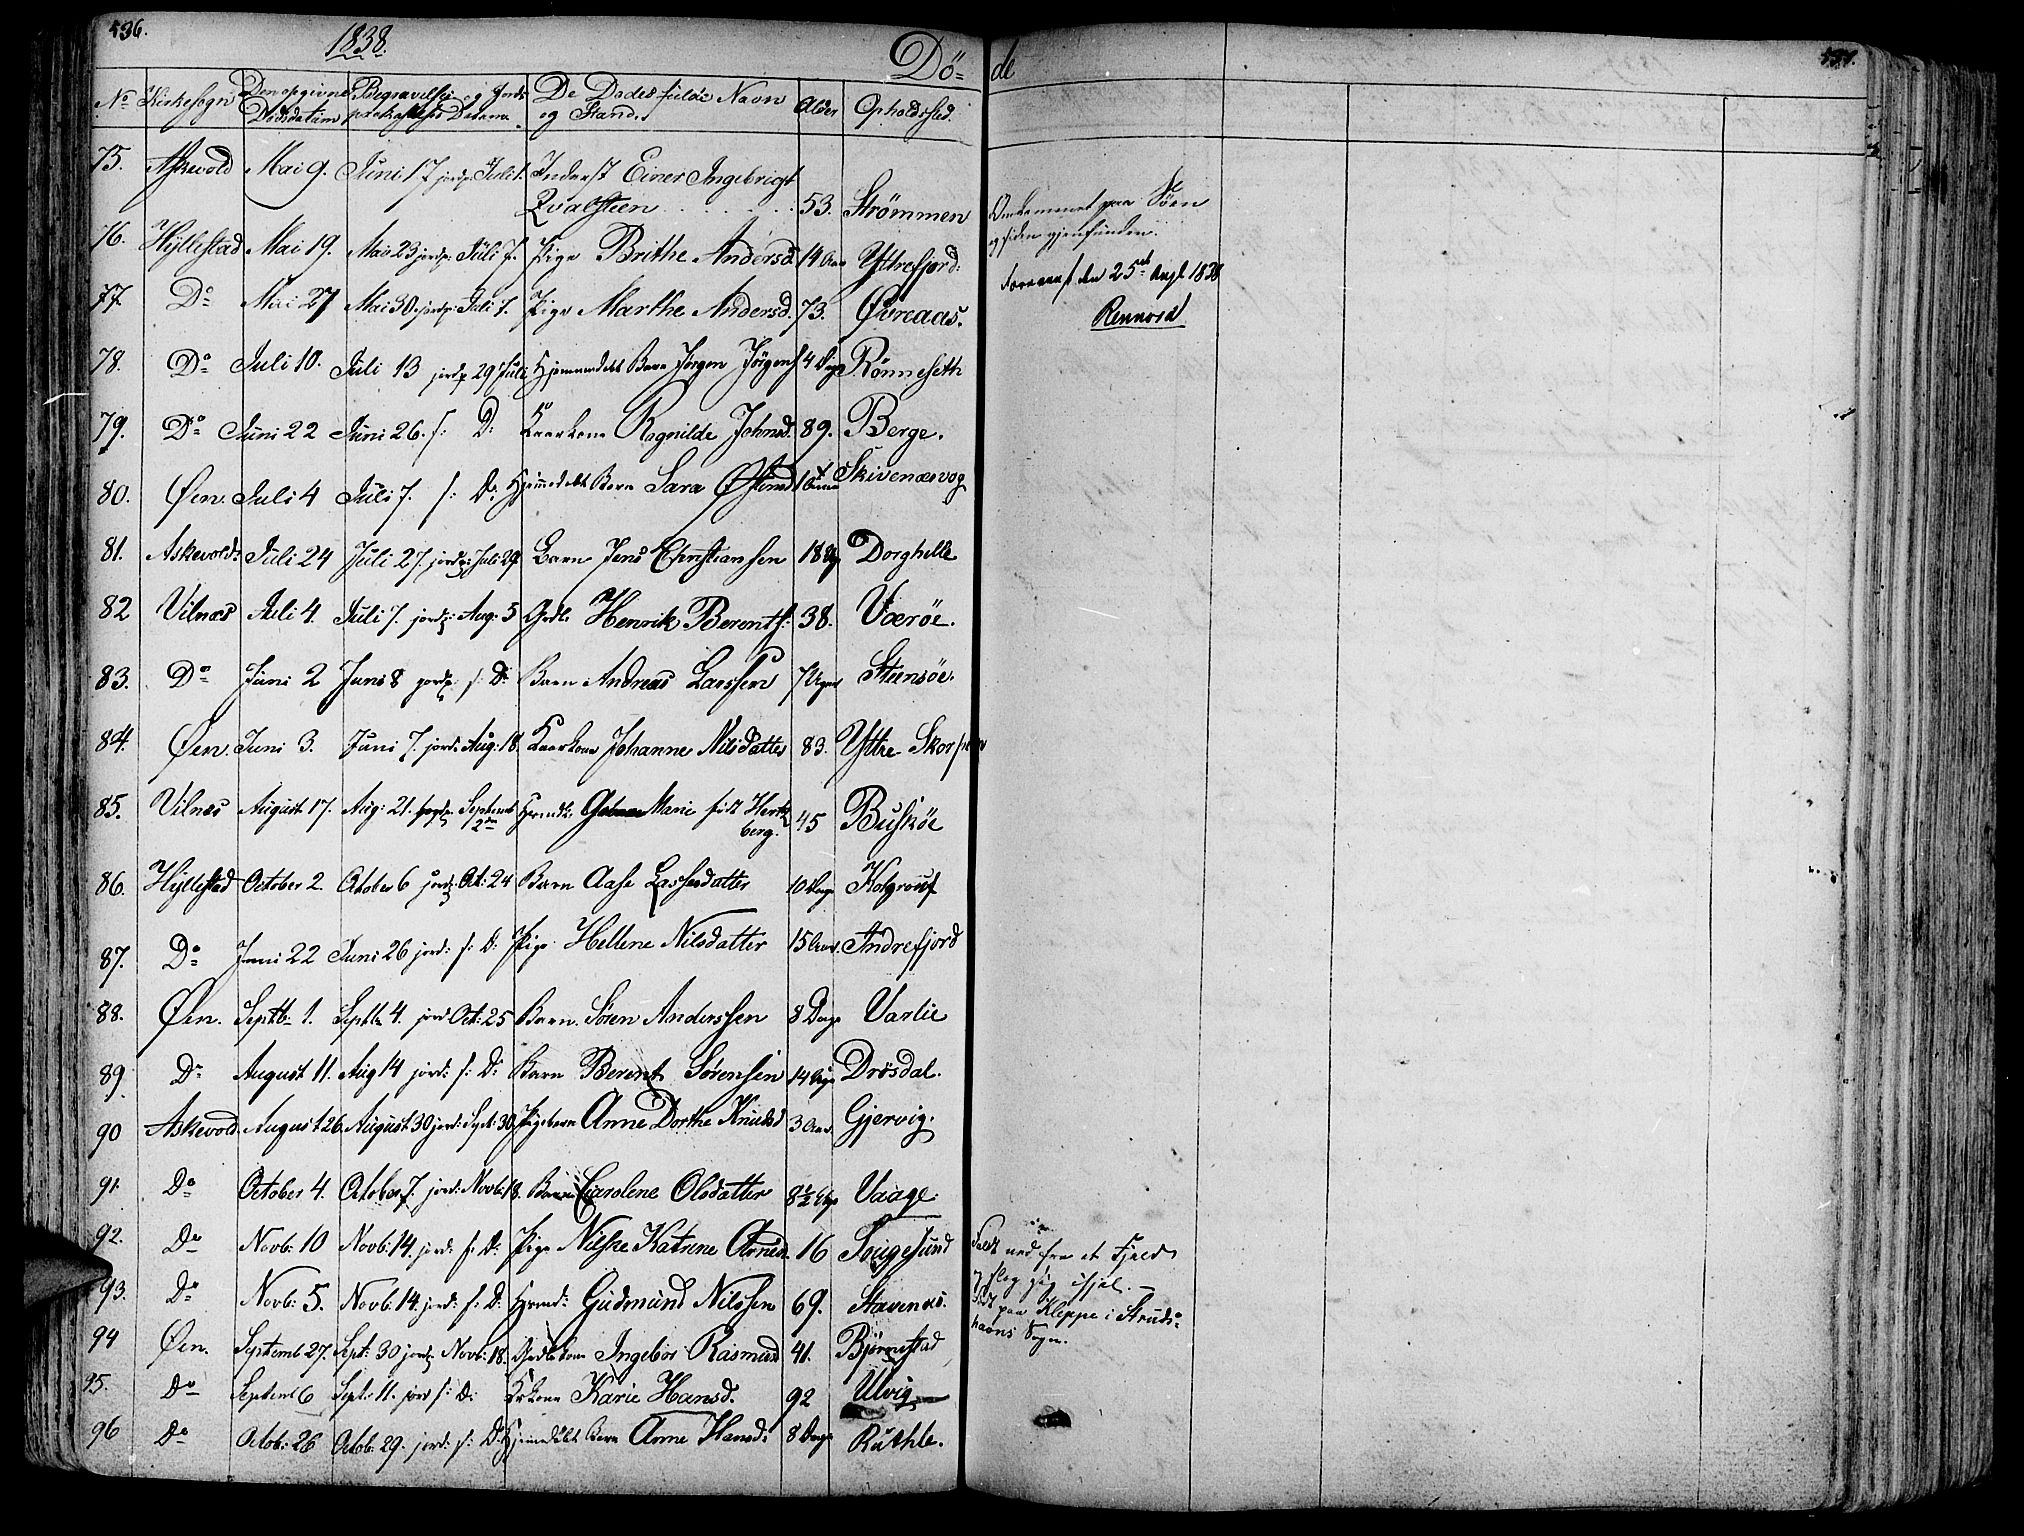 436.
1838.
Dö= de
437.
No Kirkesogn Den opgivne Dödsdatum Begravelses og Jords paakastelses Datum De Dödes fulde Navn og Stand. Alder Opholdssted.
75. Askevold Mai 9. Juni 17 jordp. Juli 1. Inderst Einer Ingebrigt
Qvalsteen 53. Strømmen Omkommet paa Søen
og siden gjenfunden.
76. Hyllestad Mai 19. Mai 23 jordp: Juli 7. Pige Brithe Andersd. 14 Aar Yttrefjord.
den 25de Augt 1838
77. Do Mai 27 Mai 30. jordp: Juli 7. Pige Marthe Andersd. 73. Øvreaas.
Rennord
78. Do Juli 10. Juli 13 jordp 29 Juli Hjemmedøbt Barn Jørgen Jörgens 4 Dage Rönneseth
79. Do Juni 22 Juni 26. s: D: Kaarkone Ragnilde Johnsd. 89. Berge.
80. Øen. Juli 4 Juli 7. s: D: Hjemmedøbt Barn Sara 1 Skivenæsvog
81. Askevold: Juli 24 Juli 27. jordp: Juli 29. Barn Jens Christiansen 18 Dorghelle
82 Vilnæs Juli 4. Juli 7. jordp: Aug: 5 Grdb. Henrik Berents: 38. Værøe.
83. Do Juni 2 Juni 8 jordp s: D: Barn Andreas Larssen 7 Uger Steensöe.
84. Øen. Juni 3. Juni 7. jord: Aug: 18. Kaarkone Johanne Nilsdatter 83. Yttre Skor
85. Vilnæs August 17. Aug: 21. jordp. Septemb 2den Marie født Hertz
berg. 45 Buskøe
86. Hyllestad October 2. October 6 jordp: Oct: 24 Barn Aase Lassesdatter 10 Dage
87. Do Juni 22 Juni 26 jord: s: D: Pige Hellene Nilsdatter 15 Aar. Indrefjord
88. Øen. Septb. 1. Septb. 4. jord Oct: 25 Barn. Sören Anderssen 8 Dage Varlie
89. Do August 11. Aug 14 jord: s: D: Barn Berent Sørensen 14 Drösdal.
90 Askevold. August 26. August 30 jord: Sept: 30. Pigebarn Anne Dorthe Knudsd 3 Aar. Gjervig.
91. Do October 4. October 7. jord: Novb: 18. Barn Carolene Olsdatter 8½ Vaage
92. Do Novb: 10 Novb: 14. jord: s: D: Pige Nilske Katrine 16 Souge sund Faldt ned fra et Fjeld
og slog sig ihjel. —
93. Do Novb: 5. Novb: 14. jord: s: D: Gudmund Nilssen 69. Stavenæs. Født paa Kleppe i
havns Sogn.
94 Øen. Septemb 27. Sept: 30 jordp Novb: 18. Grdbkone Ingebor Rasmusd 41. Björnestad
95. Do Septem 6 Sept: 11. jord s: D: Krkone Karie Hansd. 92 Ulvig
96 Do Octob: 26 Octob: 29. jord: s: D: Hjemdöbt Barn Anne Hansd: 8 Dage Ruthle.